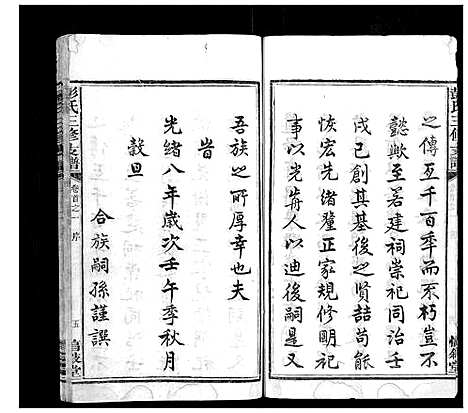 之傳亙千百年而不朽豈不
懿歟至若建祠崇祀同治壬
戌已創其基後之賢喆苟能
恢宏先緒釐正家規修明祀
事以光前人以迪後嗣是又
吾族之所厚幸也夫
皆
光緒八年歲次壬午季秋月
穀旦
合族嗣孫謹譔
彭氏三修支譜
卷首之一
序
五
彭氏三修支譜